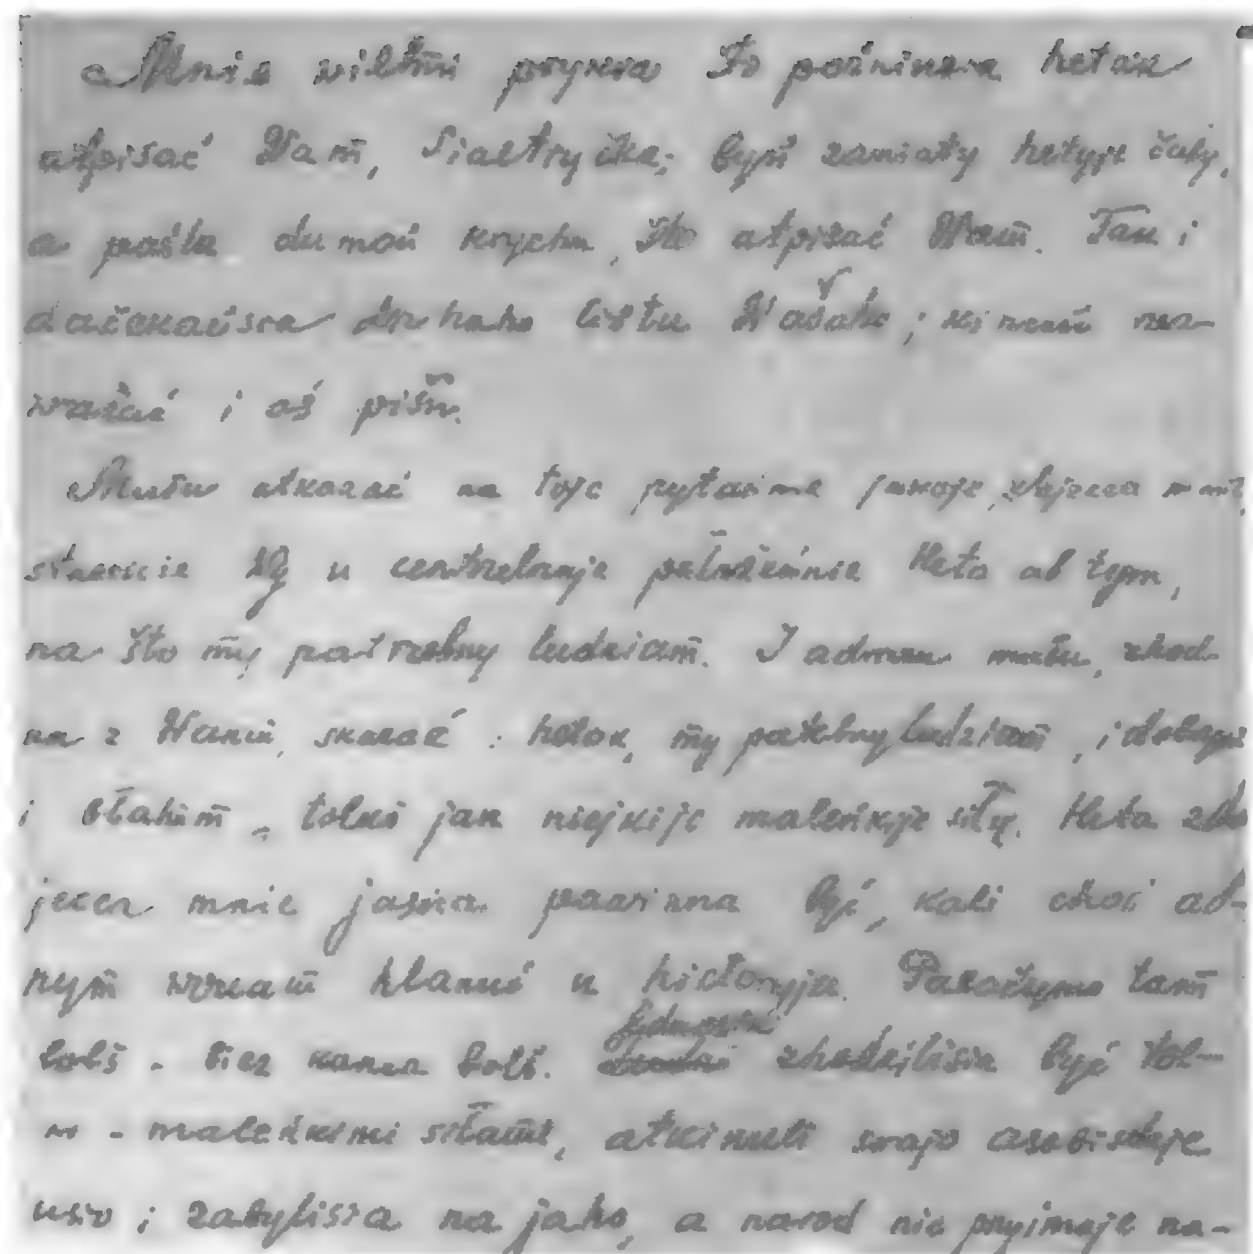 Mnie wielmi prykra što pavinna hetak
atpisać Vam, Siastryčka; byŭ zaniaty hetyje čały,
a pośla dumaŭ krychu, što atpisać Wam. Tak i
dačekaŭsia druhaho listu Wašaho; ki
i oś pišu.
Mušu atkazać na toje pytannie jakoje, zdajecca mnie,
stanowie u centralnaje pałažeńnie. Heta ab tym,
na što my patrebny ludziam. I adrazu mušu, zhod-
na z Wami, skazać: hetak, my patrebny ludziam, i
i błahim, tolki jak niejkije maleńkije siły. Heta zda-
jecca mnie jasna pawinna być, kali choć ad-
nym wokam hlanuć u historyju. Pabačymo tam
bolš - biez kanca bolš. zhadzilisia być tol-
ki - maleńkimi siłami, atkinuli swajo asabistaje
usio i zabylisia na jaho, a narod nie pryjmaje na-